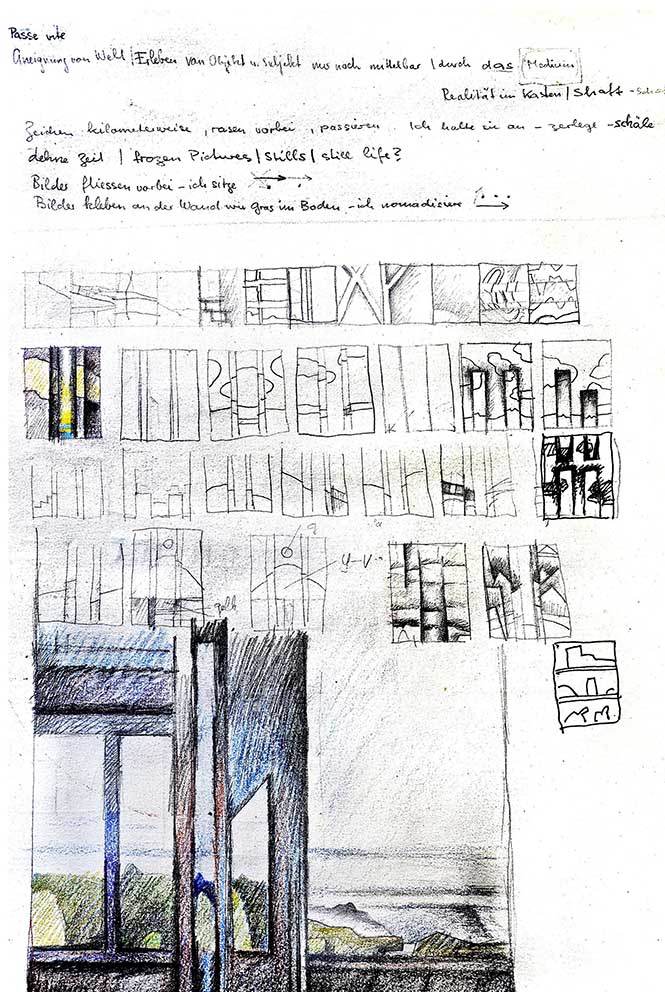 Passe vite
Aneignung von Welt / Erleben von Objekt u. Subjekt nur noch mittelbar / durch das Medium
Realität im Kasten / Schaft -
Zeichen kilometerweise, rasen vorbei, passieren. Ich halte sie an - zerlege - schäle
dehne Zeit / frozen Pictures / Stills / still life?
Bilder fliessen vorbei - ich sitze
Bilder kleben an der Wand wie Gras im Boden - ich nomadisiere
gelb